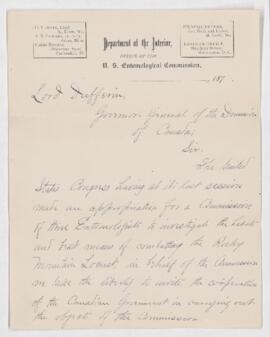 Department of the Interior,
OFFICE OF THE
U. S. Entomological Commission.
187
Lord Dufferin,
Governor General of the Dominion
of Canada,
Sir:
The United
States Congress having at its last session
made an appropriation for a Commission
of three Entomologists to investigate the habits
and best means of combatting the Rocky
Mountain Locust, in behalf of the Commission
we take the liberty to invite the cooperation
of the Canadian Government in carrying out
the objects of the Commission